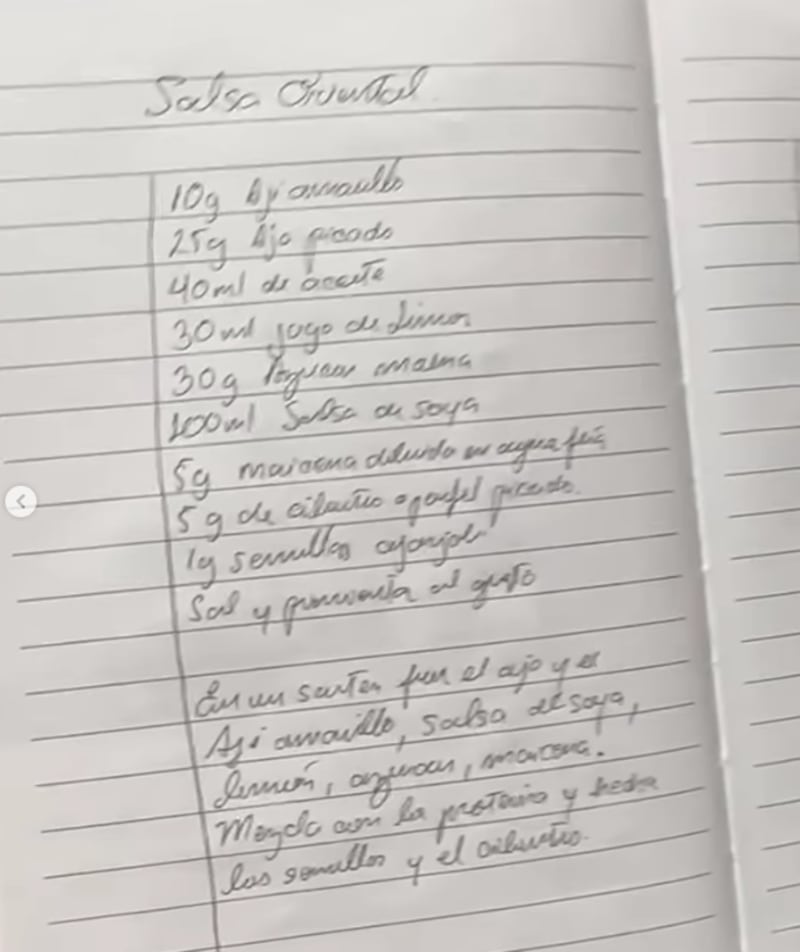 Salsa Oriental
10g Aji amarillo
25g Ajo picado
40ml de aceite
30ml jogo de limon
30g Azucar morena
100ml Salsa de soya
5g maicena diluida en agua fria
5g de cilantro o perejil picado.
1g semillas ajonjoli
Sal y pimienta al gusto
En un sarten freir el ajo y el
Aji amarillo, salsa de soya,
limón, azucar, maicena.
Mezcla con la proteina y
las semillas y el cilantro.